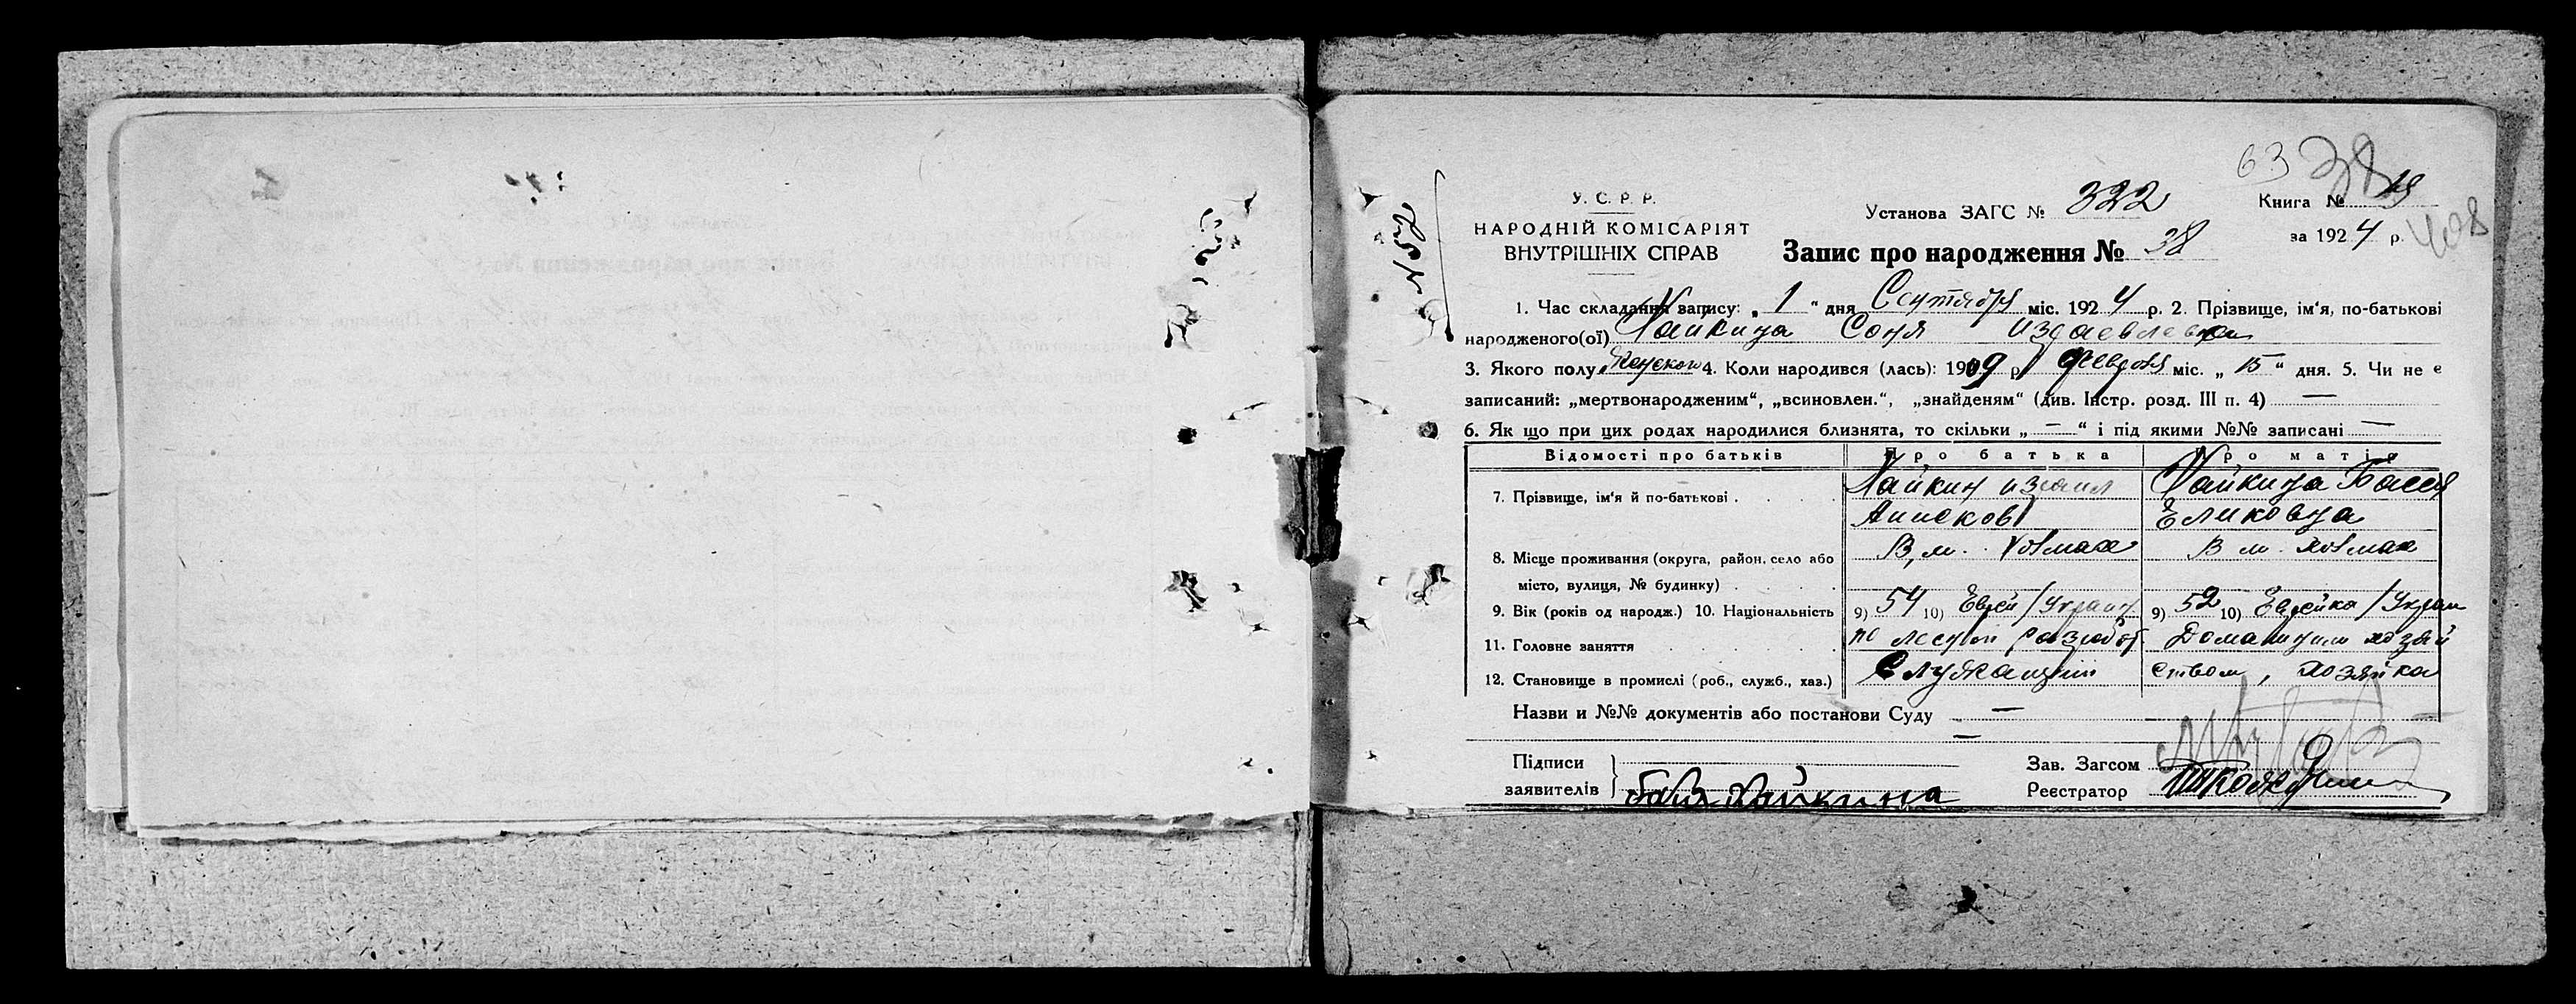 63 38
У. С. Р. Р.
НАРОДНІЙ КОМІСАРІЯТ
ВНУТРІШНІХ СПРАВ
Установа ЗАГС № 322
Книга № 19
за 1924 р. 408
Запис про народження № 38
1. Час складання запису: „ 1 “ дня Сентября міс. 1924 р. 2. Прізвище, ім'я, по-батькові
народженого(ої) Хайкина Соня Израевлевна
3. Якого полу Женскаго 4. Коли народився (лась): 1909 р. февраля міс. „ 15 “ дня. 5. Чи не є
записаний: „мертвонародженим“, „всиновлен.“, „знайденям“ (див. Інстр. розд. III п. 4) —
6. Як що при цих родах народилися близнята, то скільки „ — “ і під якими №№ записані —
Відомості про батьків Про батька Про матір
7. Прізвище, ім'я й по-батькові . . . . Хайкин Израил Хайкина Бася
8. Місце проживання (округа, район, село або В м. Холмах В м. Холмах
місто, вулиця, № будинку) . . . .
9. Вік (років од народж.) 10. Національність 9) 54 10) Еврей / Украин 9) 52 10) Еврейка / Украин
11. Головне заняття . . . . по лесной разработ Домашним хозяй
12. Становище в промислі (роб., служб., хаз.) Служащий ством, хозяйка
Назви и №№ документів або постанови Суду —
—
Підписи
заявителів Бася Хайкина
Зав. Загсом
Реєстратор